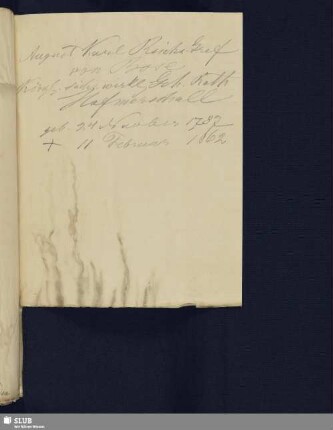 August Karl Reichs Graf
von Bose
Königl. sächs. wirkl. Geh. Rath
Hofmarschall
geb. 24 November 1787
+ 11 Februar 1862
SLUB